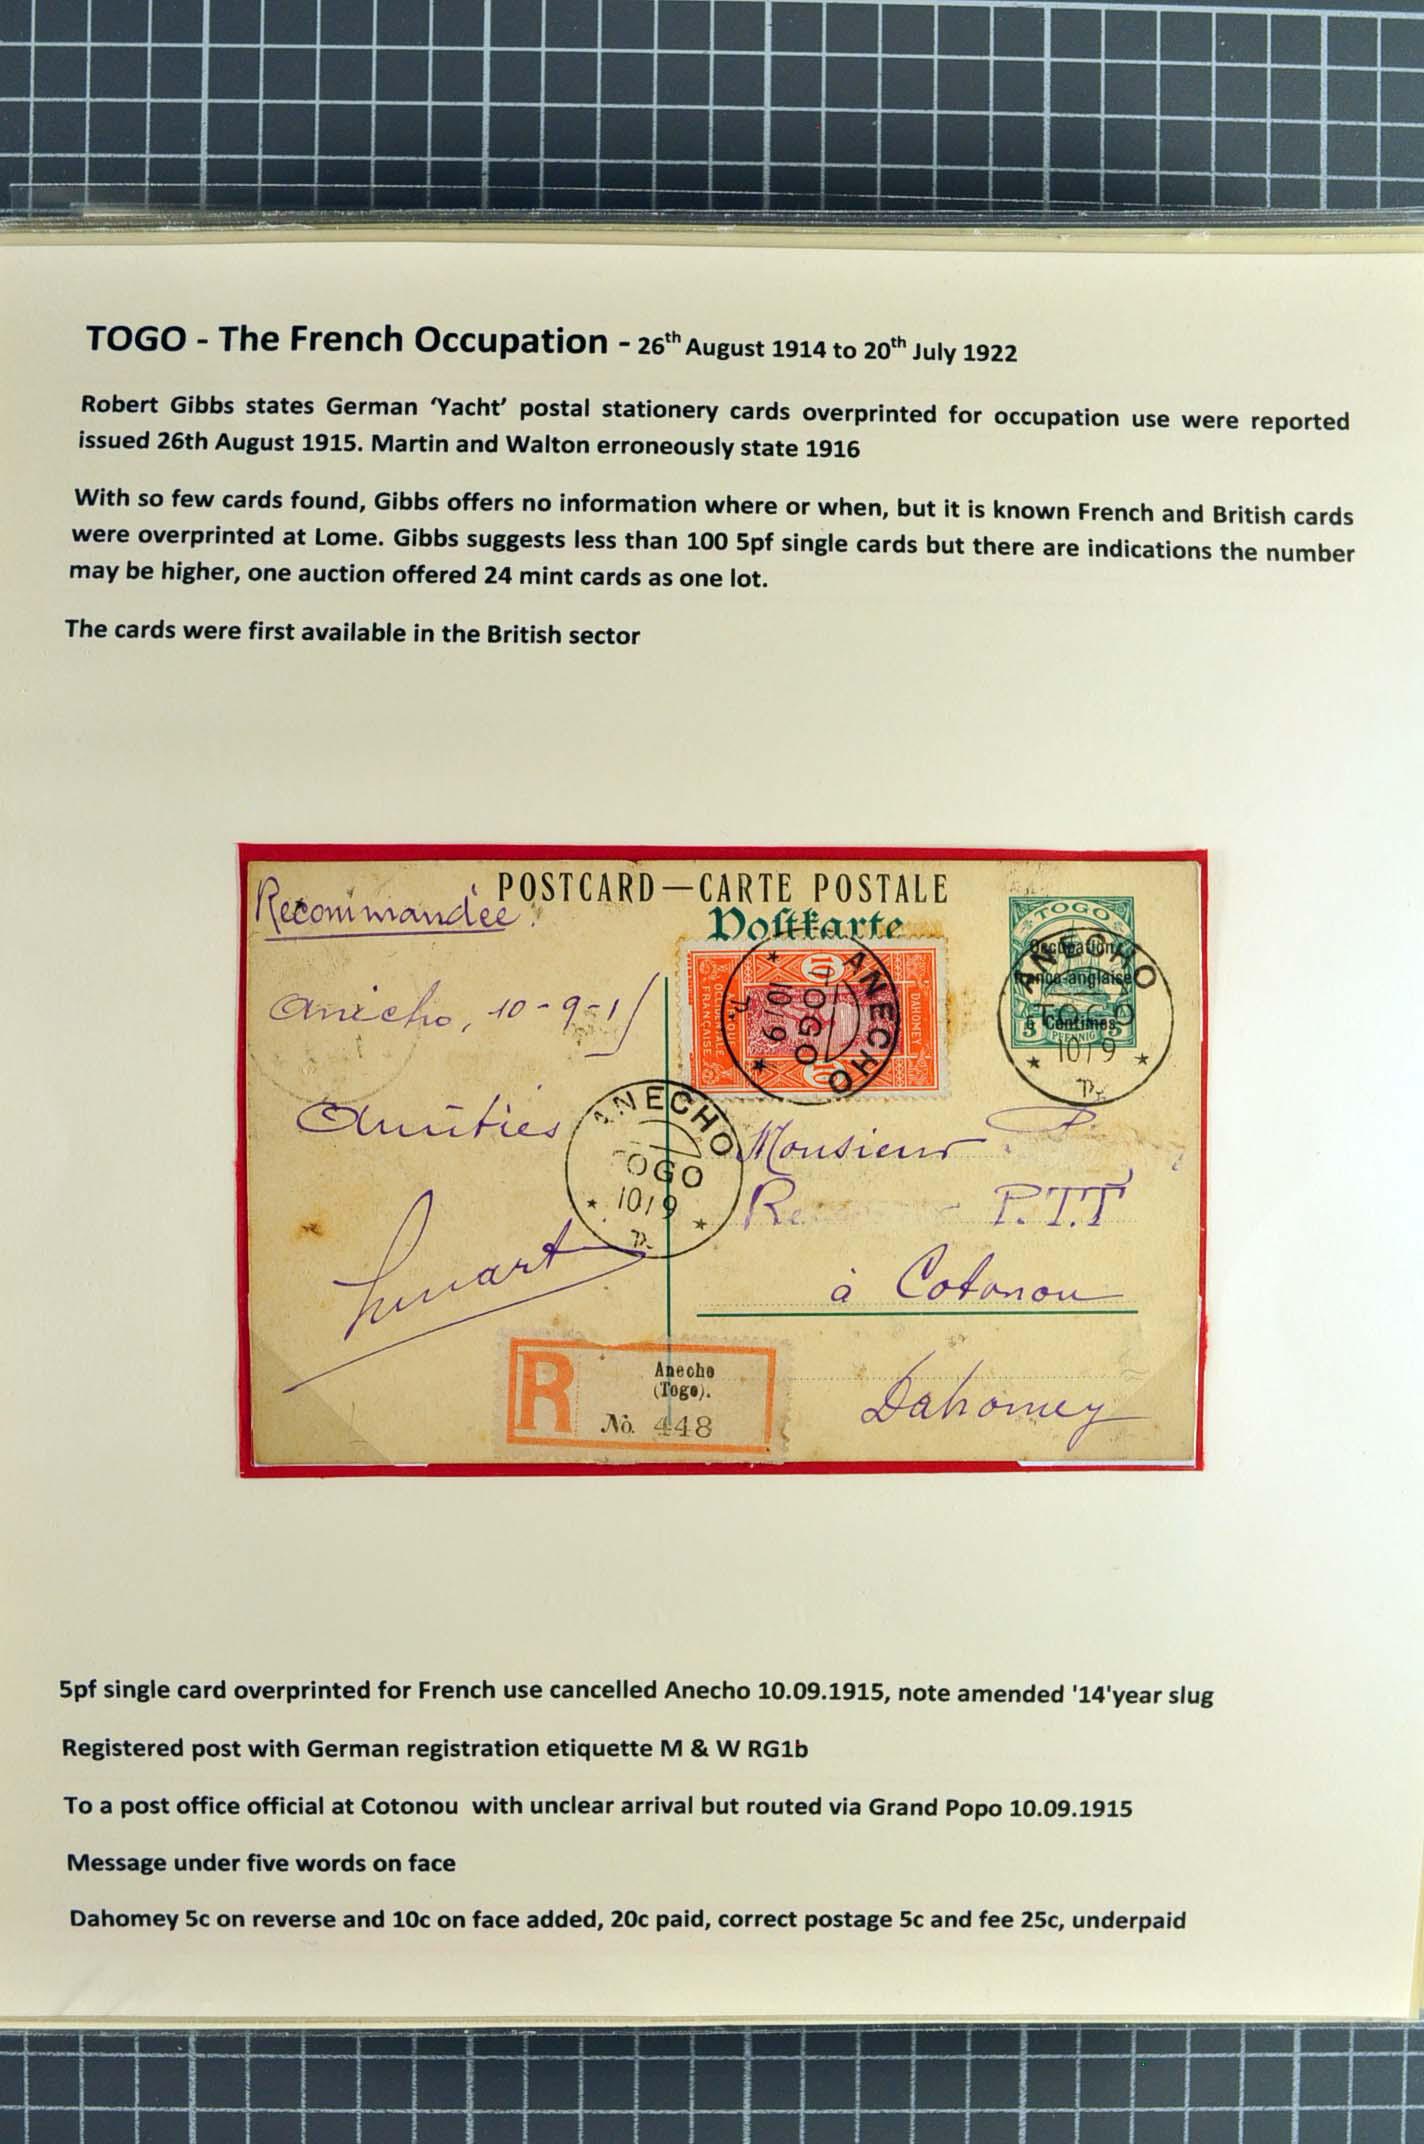 TOGO - The French Occupation - 26th August 1914 to 20th July 1922
Robert Gibbs states German ‘Yacht’ postal stationery cards overprinted for occupation use were reported
issued 26th August 1915. Martin and Walton erroneously state 1916
With so few cards found, Gibbs offers no information where or when, but it is known French and British cards
were overprinted at Lome. Gibbs suggests less than 100 5pf single cards but there are indications the number
may be higher, one auction offered 24 mint cards as one lot.
The cards were first available in the British sector
POSTCARD—CARTE POSTALE
Postkarte
Recommandée.
TOGO
Occupation
franco-anglaise
Centimes
5 PFENNIG 5
ANECHO
TOGO
10/9
10
DAHOMEY
OCCIDENTALE
FRANÇAISE
10
ANECHO
TOGO
10/9
Anécho, 10-9-15
Amitiés
ANECHO
TOGO
10/9
Monsieur
P.T.T
à Cotonou
Dahomey
R
Anecho
(Togo).
No. 448
5pf single card overprinted for French use cancelled Anecho 10.09.1915, note amended '14'year slug
Registered post with German registration etiquette M & W RG1b
To a post office official at Cotonou with unclear arrival but routed via Grand Popo 10.09.1915
Message under five words on face
Dahomey 5c on reverse and 10c on face added, 20c paid, correct postage 5c and fee 25c, underpaid